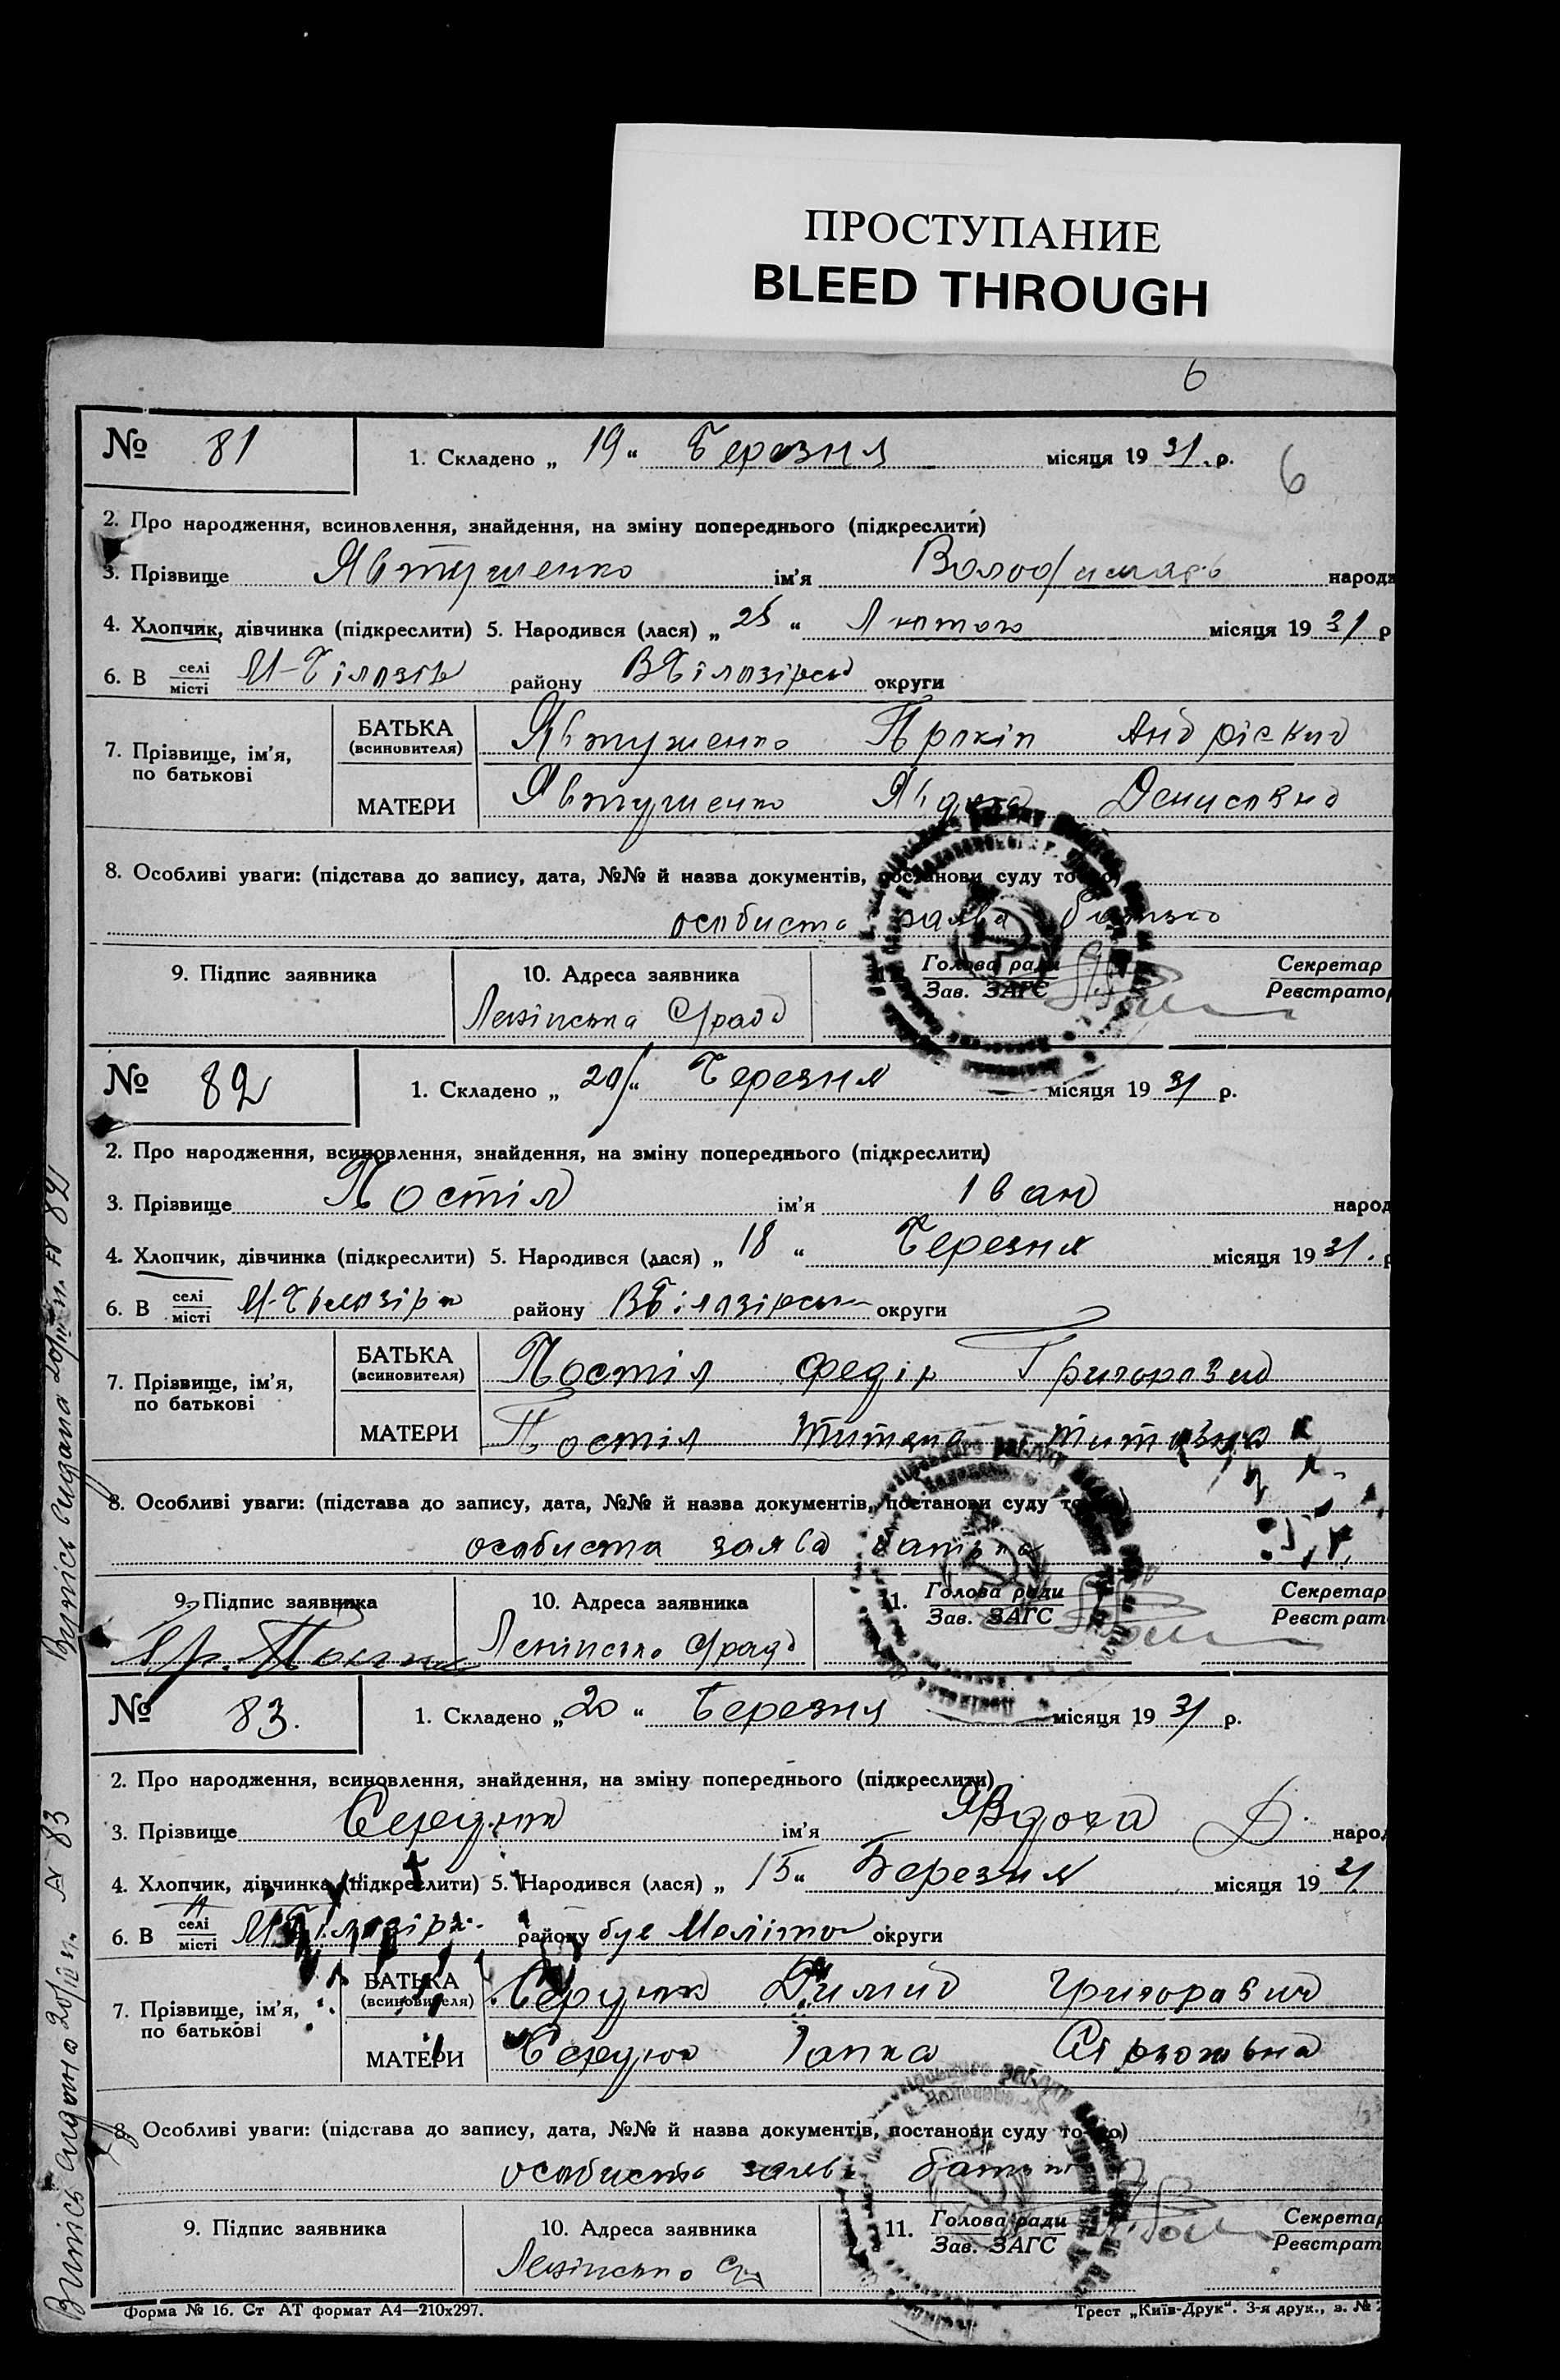 ПРОСТУПАНИЕ
BLEED THROUGH
6
№ 81 1. Складено „ 19 “ Березня місяця 19 31 р.
6
2. Про народження, всиновлення, знайдення, на зміну попереднього (підкреслити)
3. Прізвище Явтушенко ім'я Володимир народ
4. Хлопчик, дівчинка (підкреслити) 5. Народився (лася) „ 25 “ Лютого місяця 19 31 р
6. В селі місті М-Білозір району ВБілозірськ округи
7. Прізвище, ім'я, по батькові
БАТЬКА (всиновителя) Явтушенко Прокіп Андрієвич
МАТЕРИ Явтушенко Денисовна
8. Особливі уваги: (підстава до запису, дата, №№ й назва документів, постанови суду тощо)
особиста заява батько
9. Підпис заявника 10. Адреса заявника 11. Голова ради Зав. ЗАГС Секретар Реєстратор
Ленінська С/рада
№ 82 1. Складено „ 20/ “ Березня місяця 19 31 р.
2. Про народження, всиновлення, знайдення, на зміну попереднього (підкреслити)
3. Прізвище Постіл ім'я Іван народ
4. Хлопчик, дівчинка (підкреслити) 5. Народився (лася) „ 18 “ Березня місяця 19 31. р
6. В селі місті М-Білозір району ВБілозірськ округи
7. Прізвище, ім'я, по батькові
БАТЬКА (всиновителя) Постіл Федір Григорович
МАТЕРИ Постіл Титовна
8. Особливі уваги: (підстава до запису, дата, №№ й назва документів, постанови суду тощо)
особиста заява батька
9. Підпис заявника 10. Адреса заявника 11. Голова ради Зав. ЗАГС Секретар Реєстрат
Ленінська С/рада
№ 83. 1. Складено „ 20 “ Березня місяця 19 31 р.
2. Про народження, всиновлення, знайдення, на зміну попереднього (підкреслити)
3. Прізвище Середюк ім'я Явдоха Д. народ
4. Хлопчик, дівчинка (підкреслити) 5. Народився (лася) „ 15 “ Березня місяця 19 31
6. В селі місті М-Білозірк району округи
7. Прізвище, ім'я, по батькові
БАТЬКА (всиновителя) Сердюк Димид Григорович
МАТЕРИ Середюк Гапка
8. Особливі уваги: (підстава до запису, дата, №№ й назва документів, постанови суду тощо)
особиста заява батьк
9. Підпис заявника 10. Адреса заявника 11. Голова ради Зав. ЗАГС Секретар Реєстрат
Ленінська С/р
Форма № 16. Ст АТ формат А4—210х297. Трест „Київ-Друк“. 3-я друк., з. №
Випісь видана 20/III п. № 82
Випісь видана 20/III п. № 83